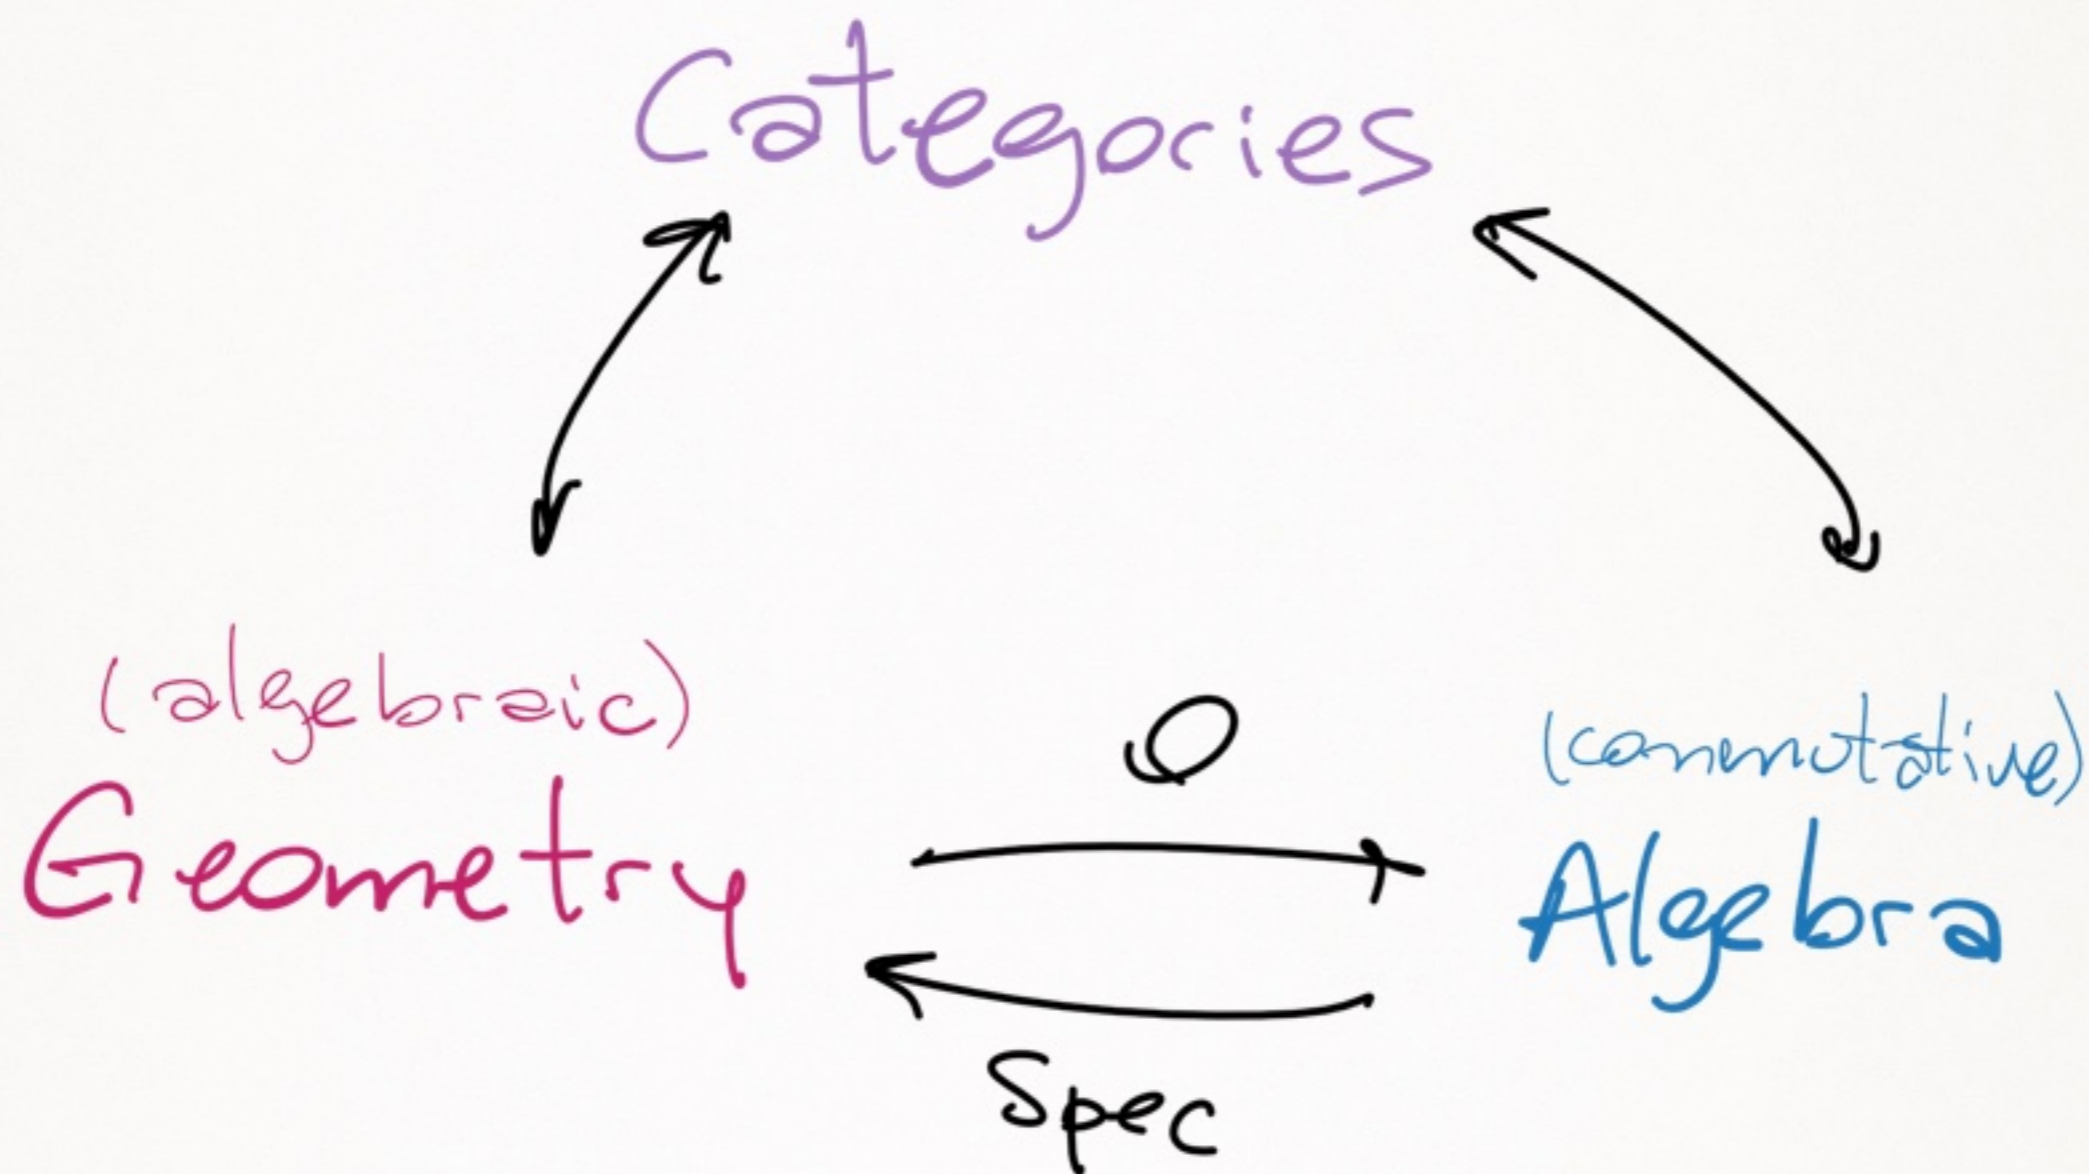 Categories
(algebraic)
Geometry
O
(commutative)
Algebra
Spec